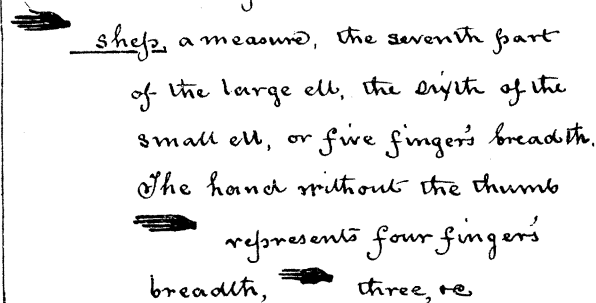 shep, a measure, the seventh part
of the large ell, the sixth of the
small ell, or five finger's breadth.
The hand without the thumb
represents four finger's
breadth, three, &c